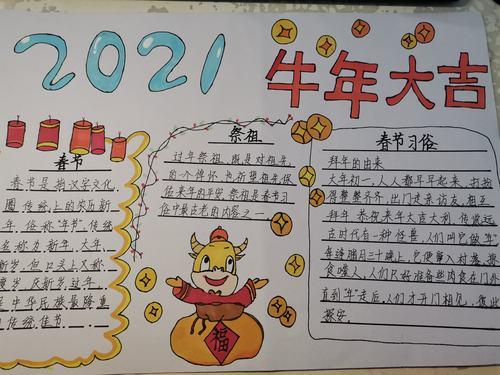 2021
牛年大吉
春节
春节是指汉字文化
圈传统上的农历新
年,俗称"年节",传统
名称为新年、大年、
新岁,但口头上又称
度岁、庆新岁、过年
中华民族最隆重
传统佳节
祭祖
过年祭祖,既是对祖先
的一个缅怀,也祈望祖先保
佑来年的平安,祭祖是春节习
俗中最古老的内容之一
福
春节习俗
拜年的由来
大年初一,人人都早早起来,打扮
得整整齐齐,出门走亲访友,相互
拜年,恭祝来年大吉大利,传说远
古时代有一种怪兽,人们叫它做"年"
每逢腊月三十晚上,它便窜入村寨,挨
食噬人,人们只好准备些肉食在门
直到"年"走后,人们才开门相见,
报安。